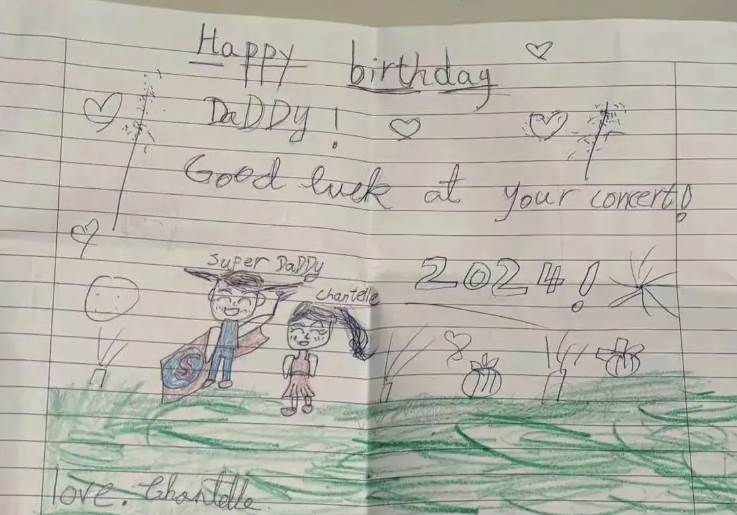 Happy birthday
DaDDy!
Good luck at your concert!
Super DaDDy
chantelle
2024!
S
love. Chantelle